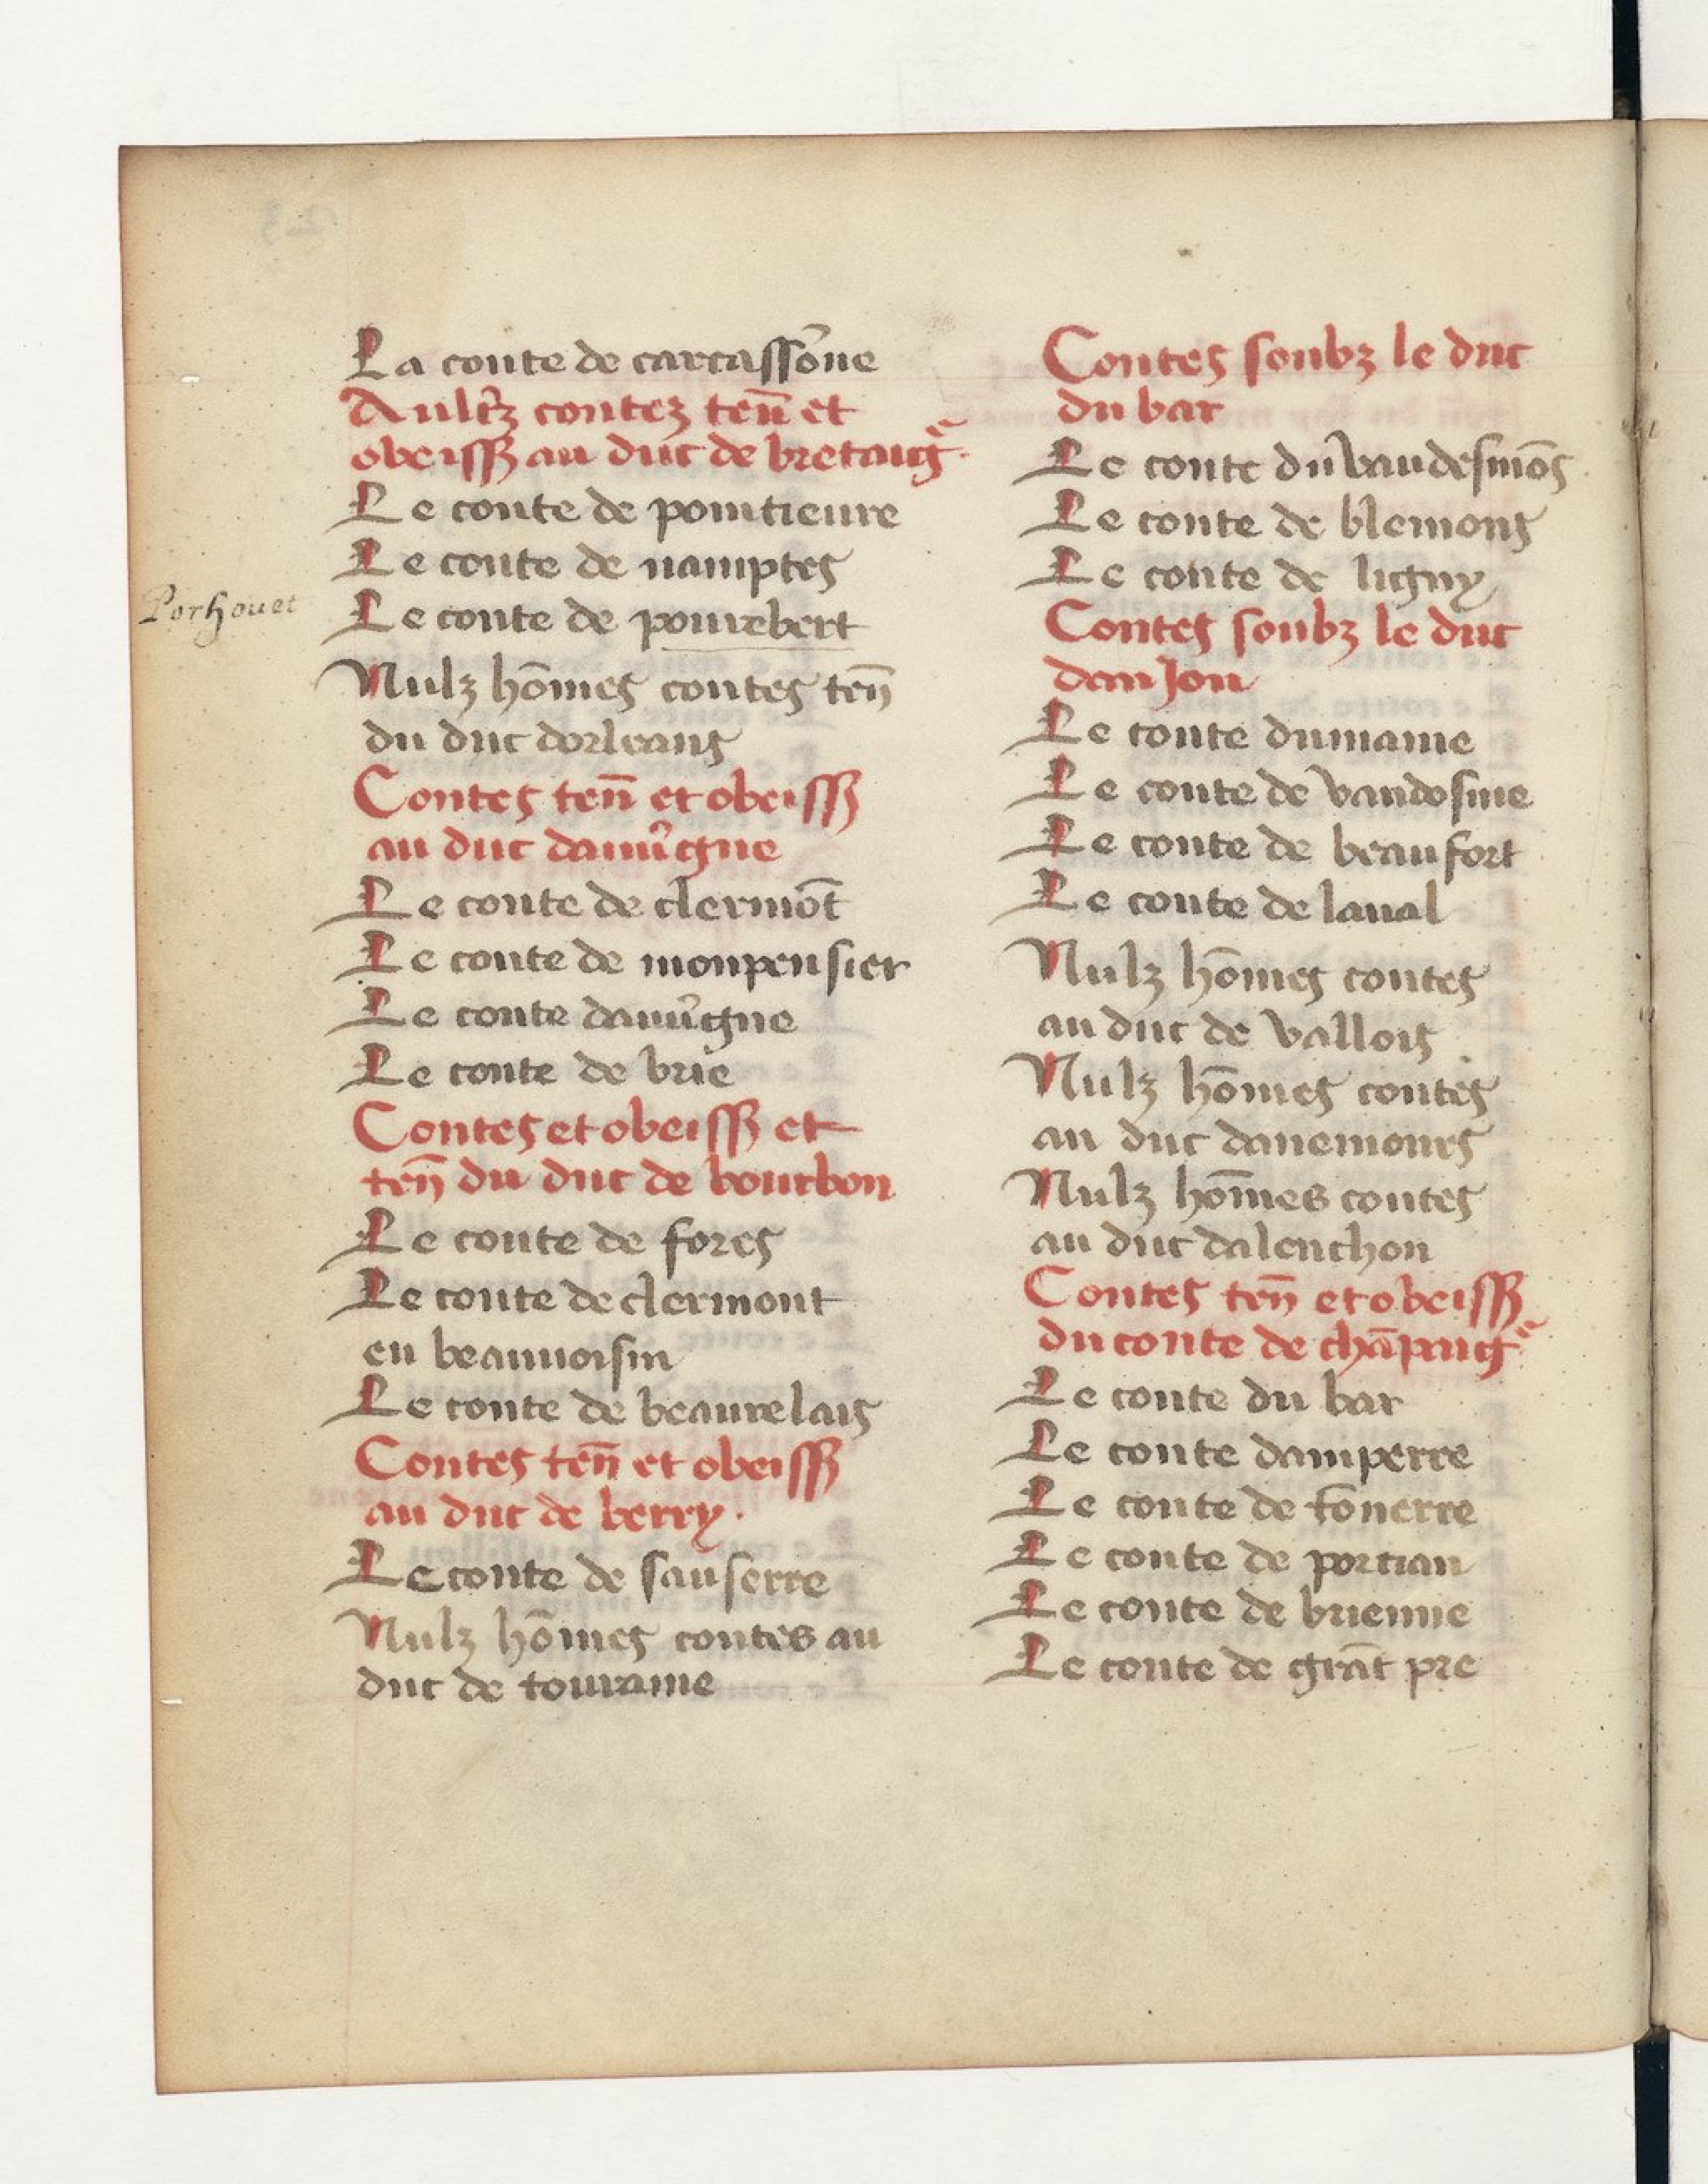 La conte de carcassõne
Aultrz contez teñ et
obeissß au duc de bretaigẽ
Le conte de pointieure
Le conte de namptes
Porhouet
Le conte de pourebert
Nulz hõmes contes teñ
du duc dorleans
Contes teñ et obeissß
au duc dauũgne
Le conte de clermõt
Le conte de monpensier
Le conte dauũgne
Le conte de brie
Contes et obeissß et
teñ du duc de bourbon
Le conte de fores
Le conte de clermont
en beauuoisin
Le conte de beaurelais
Contes teñ et obeissß
au duc de berry.
Le conte de sauserre
Nulz hõmes contes au
duc de touraine
Contes soubz le duc
du bar
Le conte du vaudesmõs
Le conte de blemons
Le conte de ligny
Contes soubz le duc
danjou
Le conte dumaine
Le conte de vandosme
Le conte de beaufort
Le conte de laual
Nulz hõmes contes
au duc de vallois
Nulz hõmes contes
au duc danemours
Nulz hõmes contes
au duc dalenchon
Contes teñ et obeissß
du conte de chãpaigẽ
Le conte du bar
Le conte damperre
Le conte de tõnerre
Le conte de portian
Le conte de brienne
Le conte de grãt pre